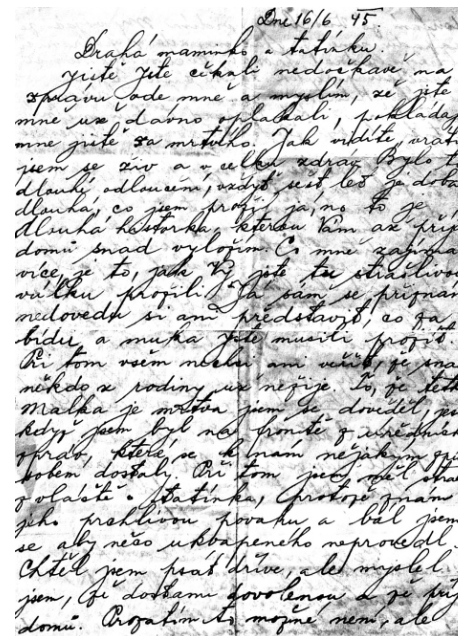 Dne 16/6. 45.
Drahá maminko a tatínku.
Jistě jste čekali nedočkavě na
zprávu ode mně a myslím, že jste
mne už dávno oplakali, pokládaj
mne jistě za mrtvého. Jak vidíte, vrátil
jsem se živ a v celku zdrav. Bylo t
dlouhé odloučení, vždyť šest let je doba
dlouhá, co jsem prožil já, no to je
dlouhá historka, kterou Vám až přij
domů snad vyložím. Co mně zajímá
více, je to, jak Vy jste tu strašlivou
válku prožili. Já sám se přiznám
nedovedu si ani představit, co za
bídu a muka jste musili prožít.
Při tom všem nechci ani věřit, že sna
někdo z rodiny už nežije. To, že teta
Malka je mrtva jsem se dověděl, je
když jsem byl na frontě z úředních
zpráv, které se k nám nějakým způ
sobem dostali. Při tom jsem měl stra
zvláště o tatínka, protože znám
jeho prchlivou povahu a bál jsem
se aby něco ukvapeného neprovedl.
Chtěl jsem psát dříve, ale myslel
jsem, že dostanu dovolenou a že přij
domů. Prozatím to možné není, ale